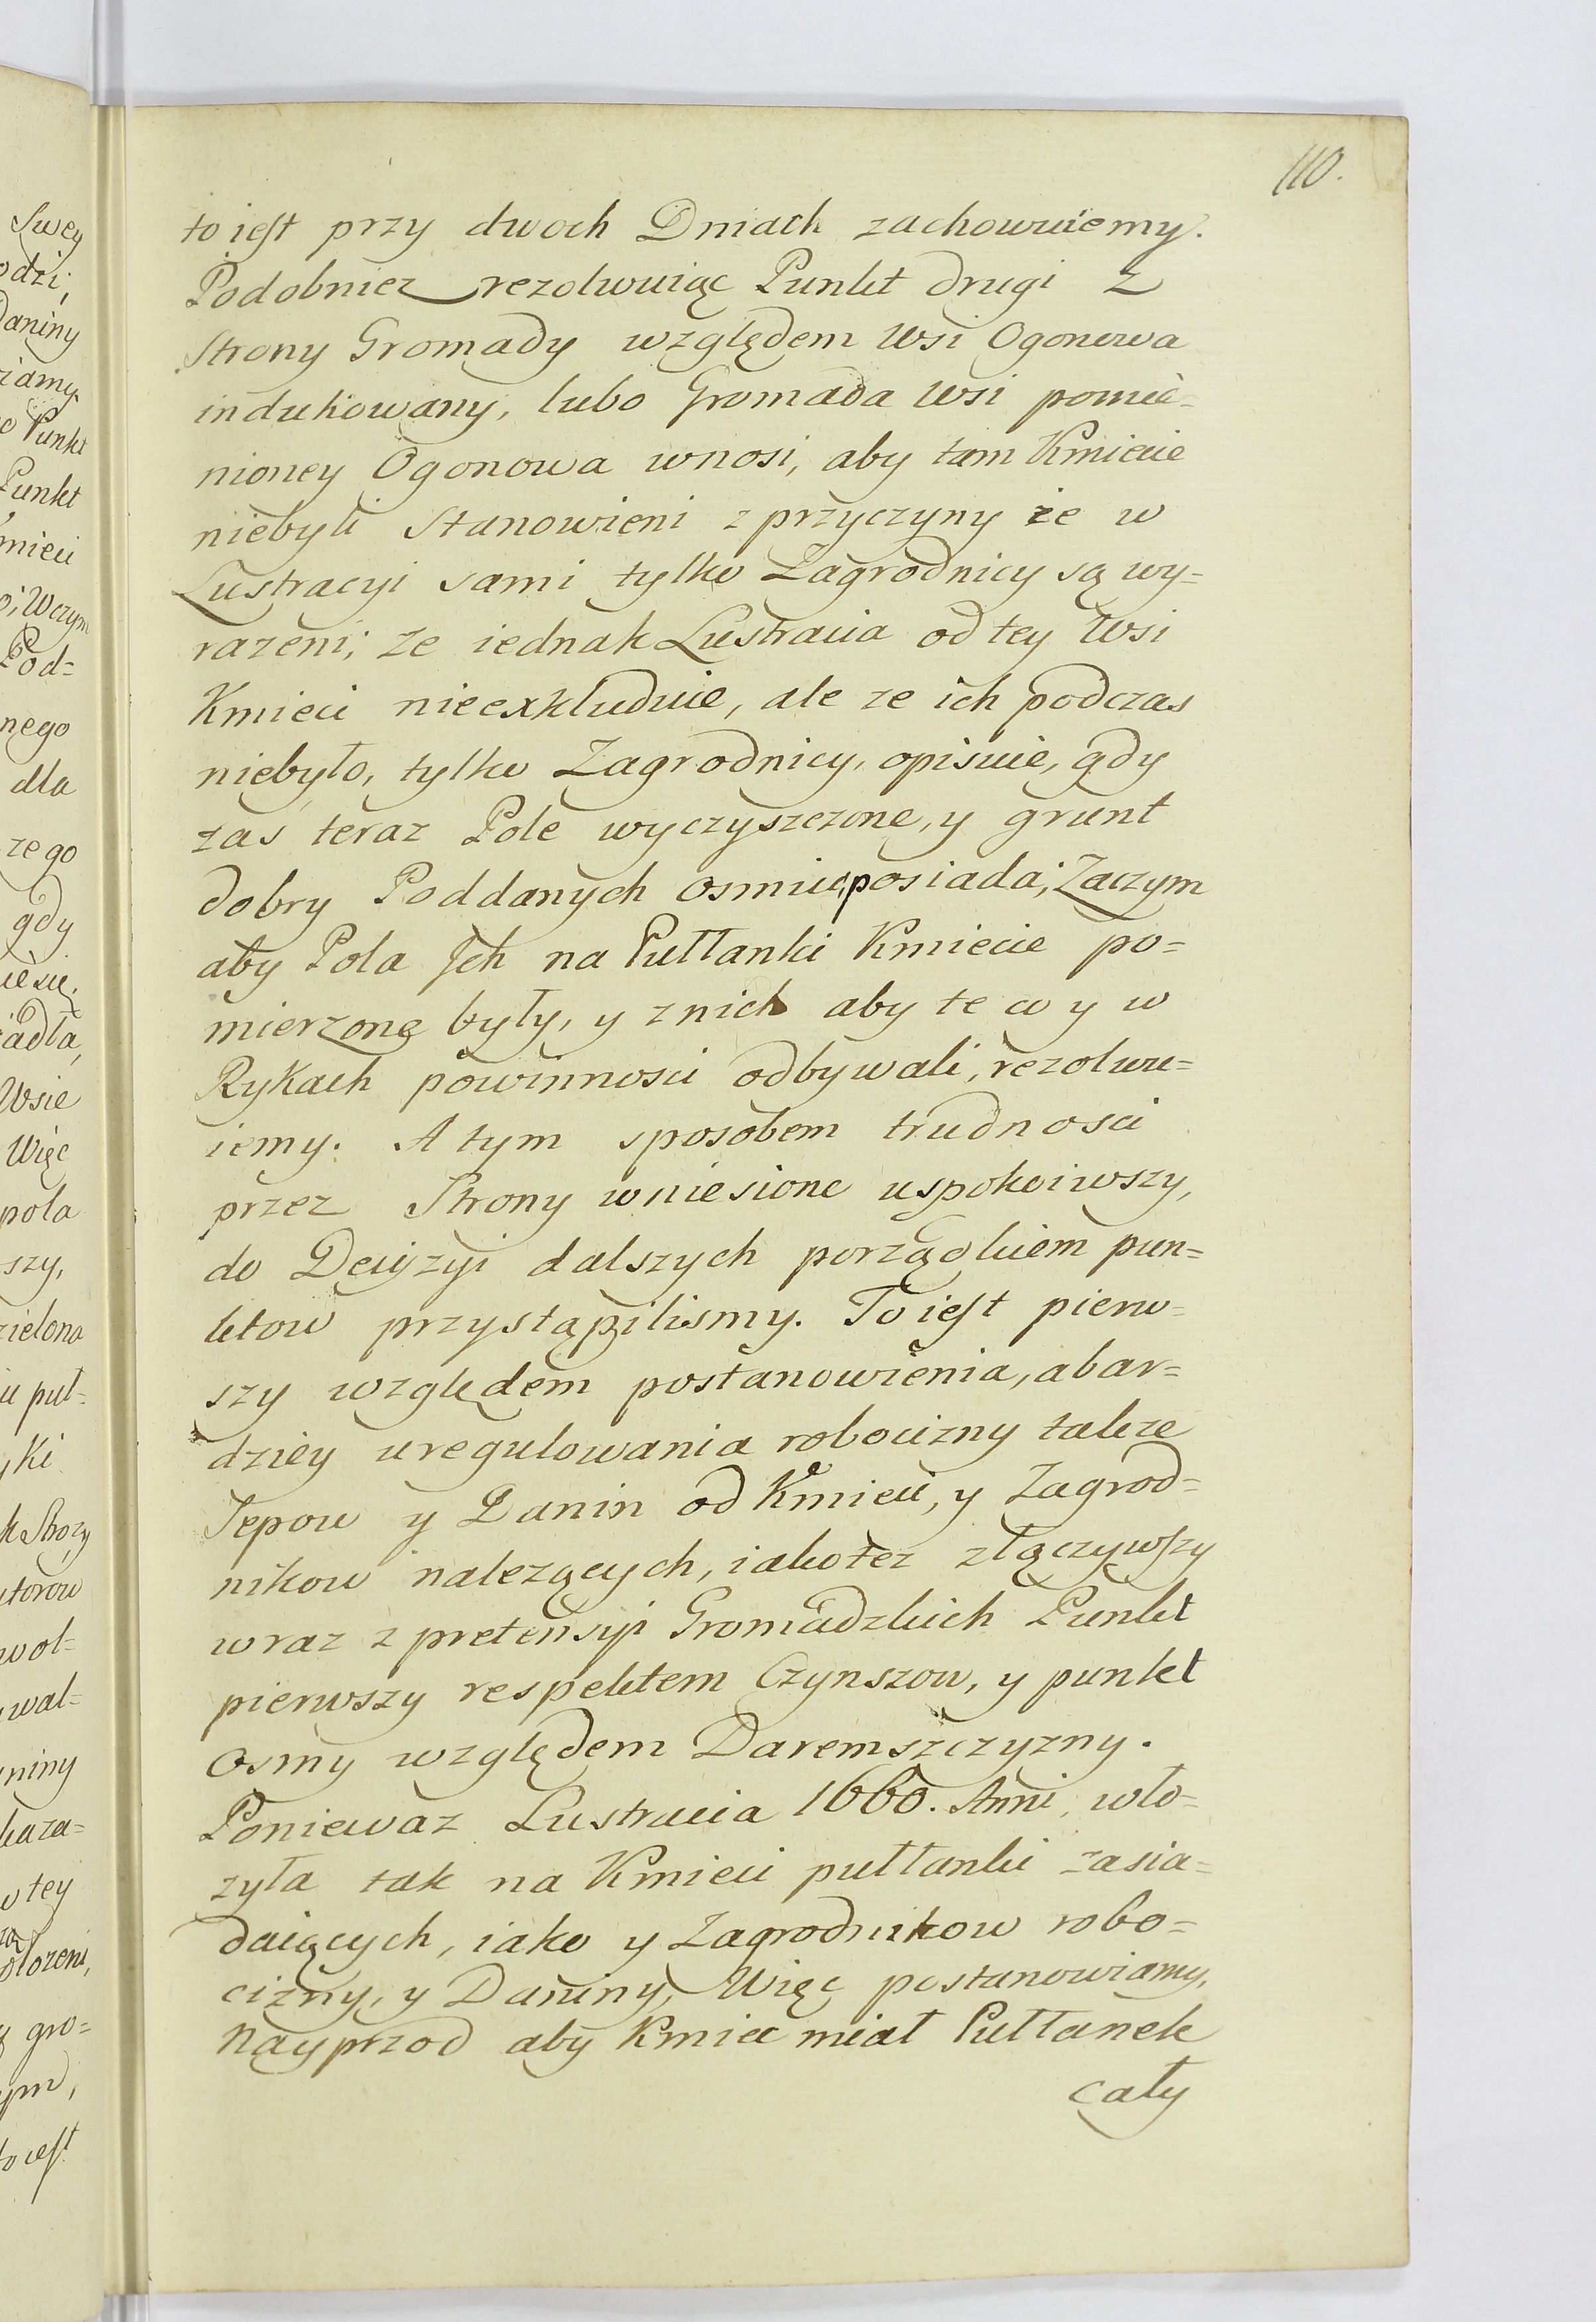 110.
to iest przy dwoch Dniach zachowuiemy.
Podobniez rezolwuiąc Punkt drugi z
Strony Gromady względem Wsi Ogonowa
indukowany, lubo Gromada Wsi pomie=
nioney Ogonowa wnosi, aby tam Kmiecie
niebyli Stanowieni z przyczyny że w
Lustracyi sami tylko Zagrodnicy są wy=
razeni; Ze iednak Lustracia od tey Wsi
Kmieci nieexkluduie, ale ze ich podczas
niebyło, tylko Zagrodnicy, opisuie, gdy
zas teraz Pole wyczyszczone, y grunt
dobry Poddanych osmiu posiada; Zaczym
aby Pola Jch na Pułłanki Kmiecie po=
mierzone były, y z nich aby te co y w
Rykach powinnosci odbywali, rezolwu=
iemy. A tym sposobem trudnosci
przez Strony wniesione uspokoiwszy,
do Decyzyi dalszych porządkiem pun=
ktow przystąpilismy. To iest pierw=
szy względem postanowienia, a bar=
dziey uregulowania robocizny takze
Sepow y Danin od Kmieci, y Zagrod=
nikow nalezących, iakotez złączywszy
wraz z pretensyi Gromadzkich Punkt
pierwszy respektem Czynszow, y punkt
osmy względem Daremszczyzny.
Poniewaz Lustracia 1660. Anni, wło=
zyła tak na Kmieci pułłanki zasia=
daiących, iako y Zagrodnikow robo=
cizny, y Daniny, Więc postanowiamy,
Nayprzod aby Kmiec miał Pułłanek
cały